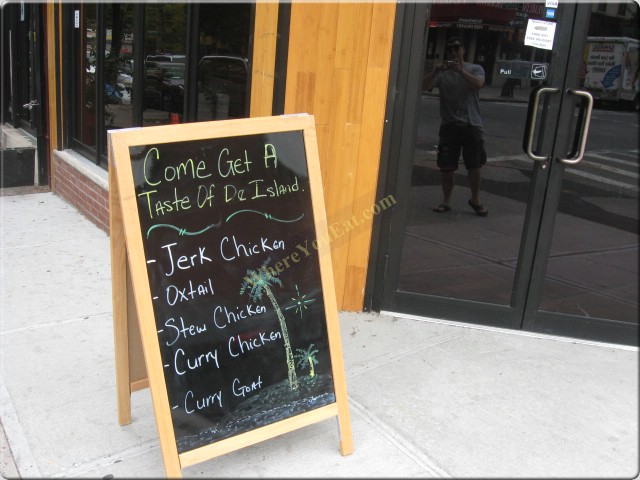 Come Get A
Taste Of De Island.
- Jerk Chicken
- Oxtail
- Stew Chicken
- Curry Chicken
- Curry Goat
WhereYouEat.com
Pull
VISA